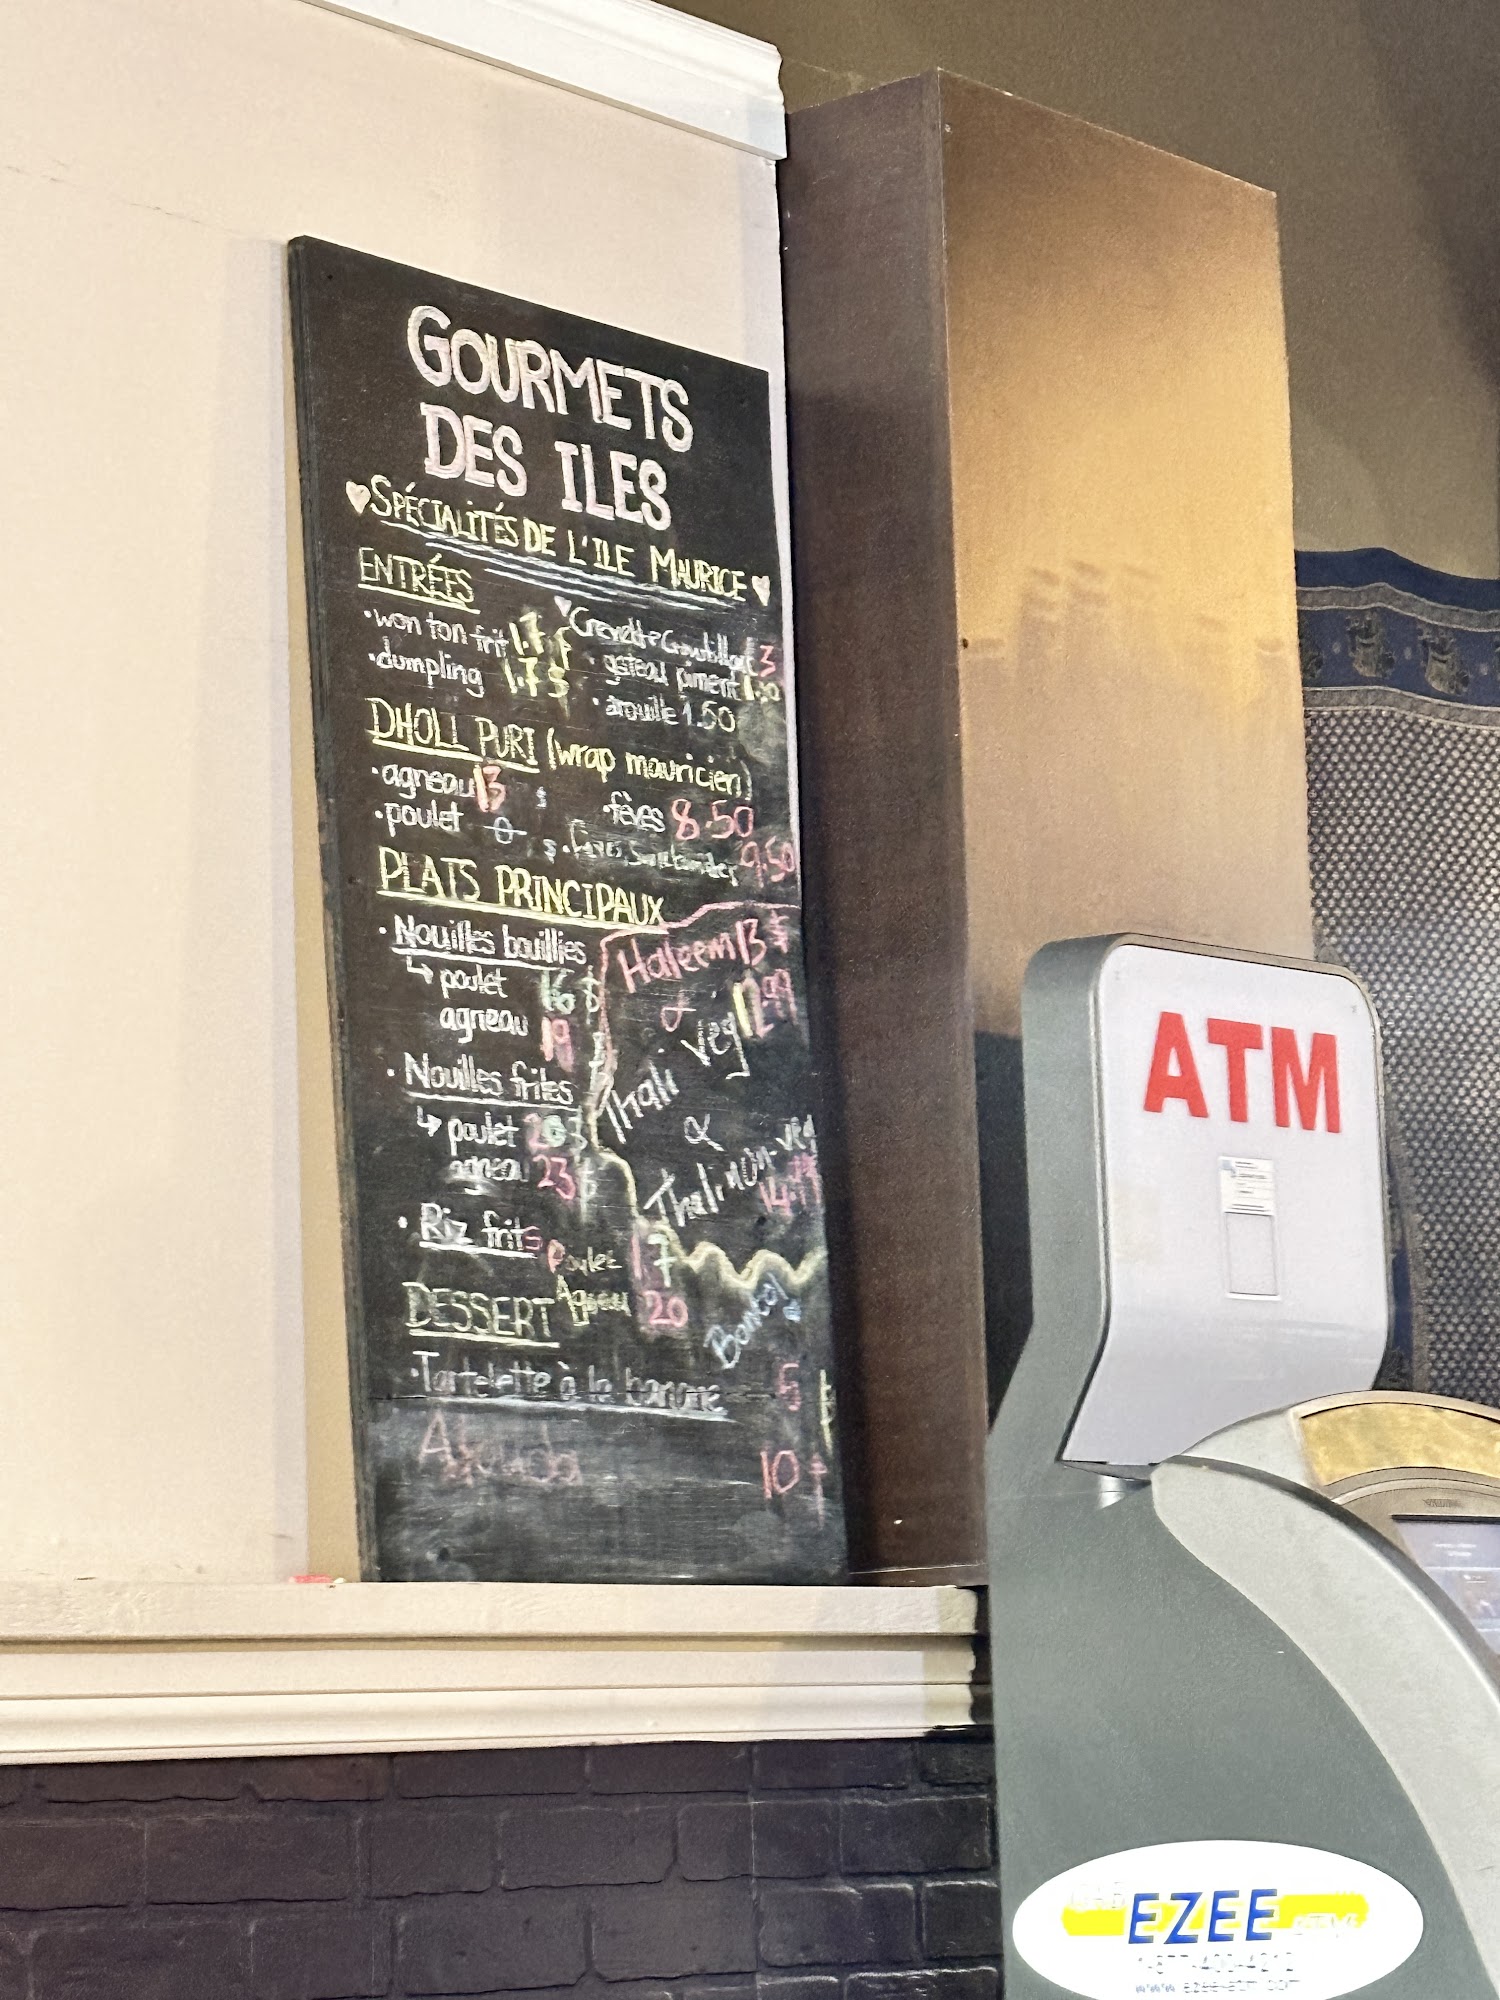 GOURMETS
DES ILES
SPÉCIALITÉS DE L'ILE MAURICE
ENTRÉES
• won ton frit 1.75
• dumpling 1.75
Crevette 3
• gateau piment 1.50
• arouille 1.50
DHOLL PURI (wrap mauricien)
• agneau 13
• poulet
• fèves 8.50
9.50
PLATS PRINCIPAUX
• Nouilles bouillies
↳ poulet 16 $
agneau 19
• Nouilles frites
↳ poulet 20 $
agneau 23 $
• Riz frits Poulet 17
Agneau 20
Haleem 13 $
Thali vég 12.99
&
Thali non-vég
14.99
DESSERT
• Tartelette à la banane 5
Alouda 10 $
ATM
EZEE
1-877-400-4212